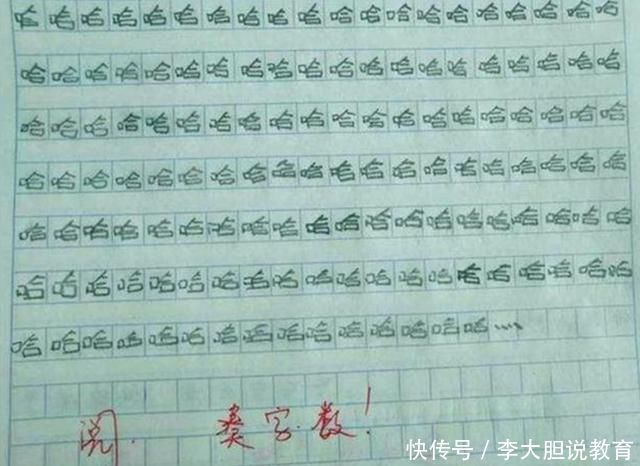 哈哈哈哈哈哈哈哈哈哈哈哈哈哈哈哈哈哈哈哈
哈哈哈哈哈哈哈哈哈哈哈哈哈哈哈哈哈哈哈哈
哈哈哈哈哈哈哈哈哈哈哈哈哈哈哈哈哈哈哈哈
哈哈哈哈哈哈哈哈哈哈哈哈哈哈哈哈哈哈哈哈
哈哈哈哈哈哈哈哈哈哈哈哈哈哈哈哈哈哈哈哈
哈哈哈哈哈哈哈哈哈哈哈哈哈哈哈哈哈哈哈哈
哈哈哈哈哈哈哈哈哈哈哈哈哈哈哈…
阅. 奏字数!
快传号 / 李大胆说教育